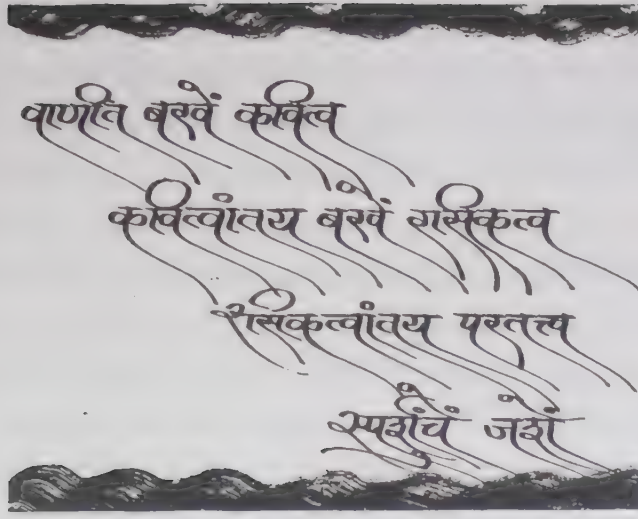 वाणीत बरवें कवित्व
कवित्वांतय बरवें रसिकत्व
रसिकत्वांतय परतत्त्व
स्पर्शचें जशें